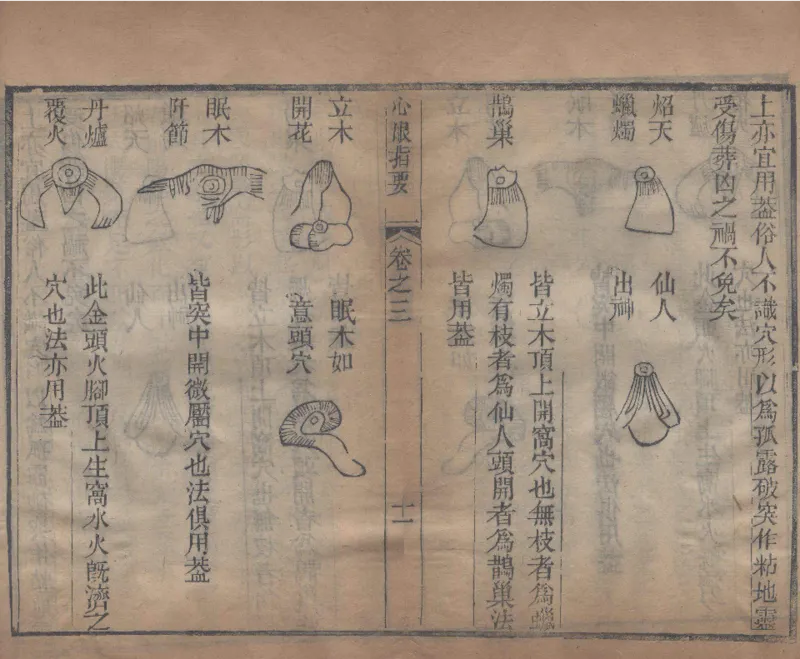 上亦宜用葢俗人不識穴形以爲孤露破突作粘地靈
受傷葬凶之禍不免矣
焰天
蠟燭
仙人
出神
皆立木頂上開窩穴也無枝者爲蠟
燭有枝者爲仙人頭開者爲鵲巢法
皆用葢
鵲巢
心眼指要
卷之三
十一
立木
開花
眠木如
意頭穴
眠木
阡節
皆突中開微靨穴也法俱用葢
丹爐
覆火
此金頭火腳頂上生窩水火旣濟之
穴也法亦用葢